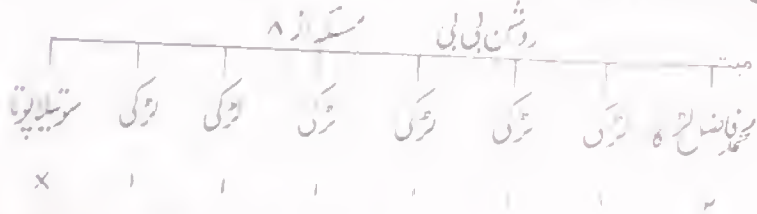 روشن بی بی مسئلہ از ۸
میت
محمد فاضل لڑکا لڑکی لڑکی لڑکی لڑکی لڑکی لڑکی سوتیلا پوتا
۲ ۱ ۱ ۱ ۱ ۱ ۱ ×